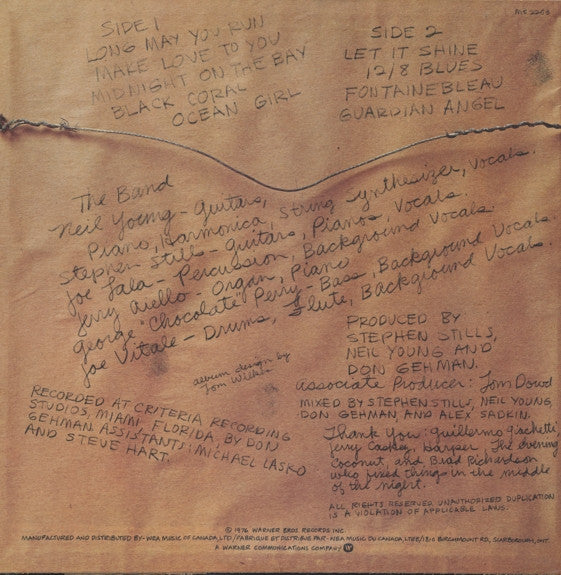 MS 2253
SIDE 1
LONG MAY YOU RUN
MAKE LOVE TO YOU
MIDNIGHT ON THE BAY
BLACK CORAL
OCEAN GIRL
SIDE 2
LET IT SHINE
12/8 BLUES
FONTAINEBLEAU
GUARDIAN ANGEL
The Band
Neil Young - Guitars,
Piano, Harmonica, String Synthesizer, Vocals.
Stephen Stills - Guitars, Pianos, Vocals.
Joe Lala - Percussion, Background Vocals.
Jerry Aiello - Organ, Piano
George "Chocolate" Perry - Bass, Background Vocals.
Joe Vitale - Drums, Flute, Background Vocals.
album design by
Tom Wilkes
PRODUCED BY
STEPHEN STILLS,
NEIL YOUNG AND
DON GEHMAN.
Associate Producer: Tom Dowd
MIXED BY STEPHEN STILLS, NEIL YOUNG,
DON GEHMAN, AND ALEX SADKIN.
RECORDED AT CRITERIA RECORDING
STUDIOS, MIAMI, FLORIDA, BY DON
GEHMAN. ASSISTANTS: MICHAEL LASKO
AND STEVE HART.
Thank You: Guillermo Giachetti
Jerry Caskey, Harper, The evening
Coconut, and Brad Richardson
who fixed things in the middle
of the night.
ALL RIGHTS RESERVED UNAUTHORIZED DUPLICATION
IS A VIOLATION OF APPLICABLE LAWS.
© 1976 WARNER BROS. RECORDS INC.
MANUFACTURED AND DISTRIBUTED BY - WEA MUSIC OF CANADA, LTD / FABRIQUE ET DISTRIBUE PAR - WEA MUSIC DU CANADA, LTEE / 1810 BIRCHMOUNT RD., SCARBOROUGH, ONT.
A WARNER COMMUNICATIONS COMPANY